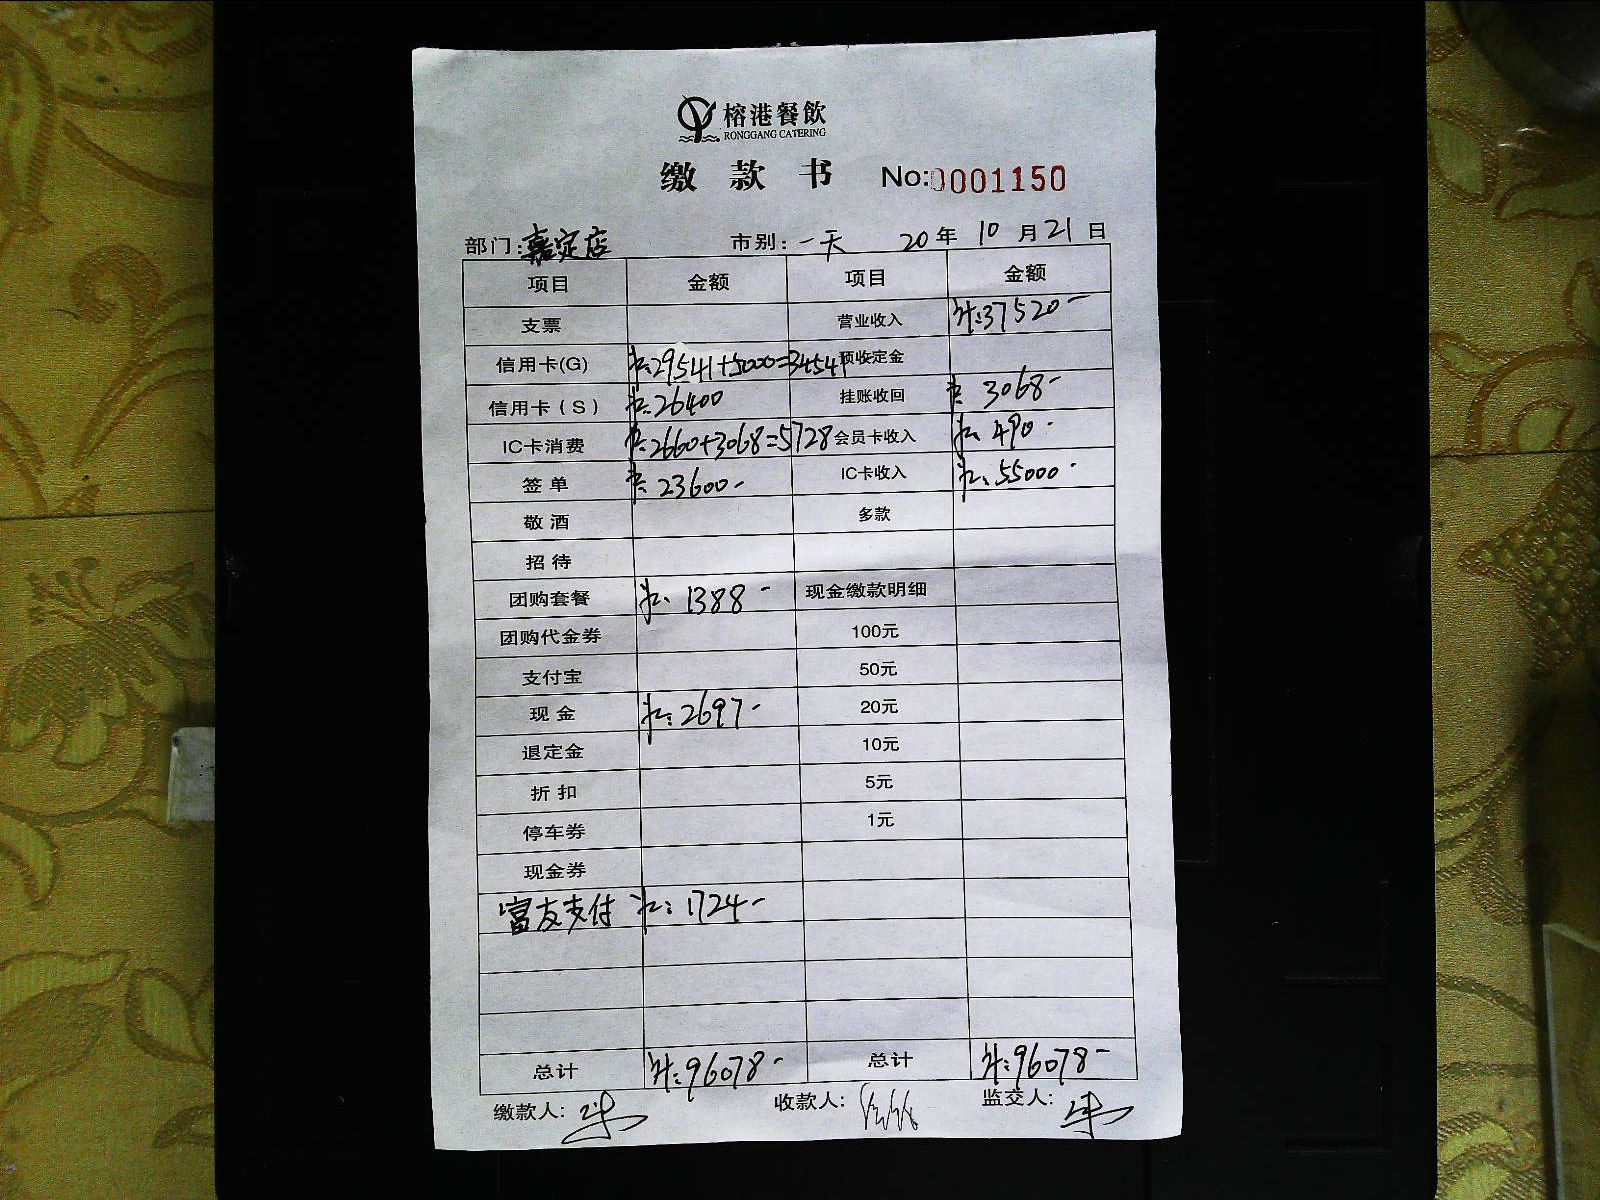 榕港餐飲
RONGGANG CATERING
缴款书 No:0001150
部门:嘉定店 市别:一天 20年10月21日
项目 金额 项目 金额
支票 营业收入 计:37520-
信用卡(G) 29541+5000=34541 预收定金
信用卡(S) 26400 挂账收回 3068-
IC卡消费 2660+3068=5728 会员卡收入 490-
签单 23600- IC卡收入 55000-
敬酒 多款
招待
团购套餐 1388- 现金缴款明细
团购代金券 100元
支付宝 50元
现金 2697- 20元
退定金 10元
折扣 5元
停车券 1元
现金券
富友支付 1724-
总计 计:96078- 总计 计:96078-
缴款人: 收款人: 监交人: